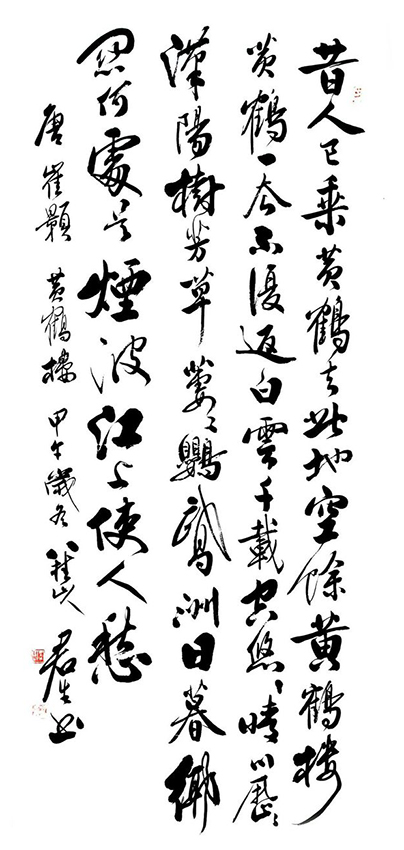 昔人已乘黄鶴去此地空餘黄鶴樓
黄鶴一去不復返白雲千載空悠〻晴川歷〻
漢陽樹芳草萋〻鸚鵡洲日暮鄉
關何處是煙波江上使人愁
唐崔顥 黄鶴樓 甲午歲冬 君生书